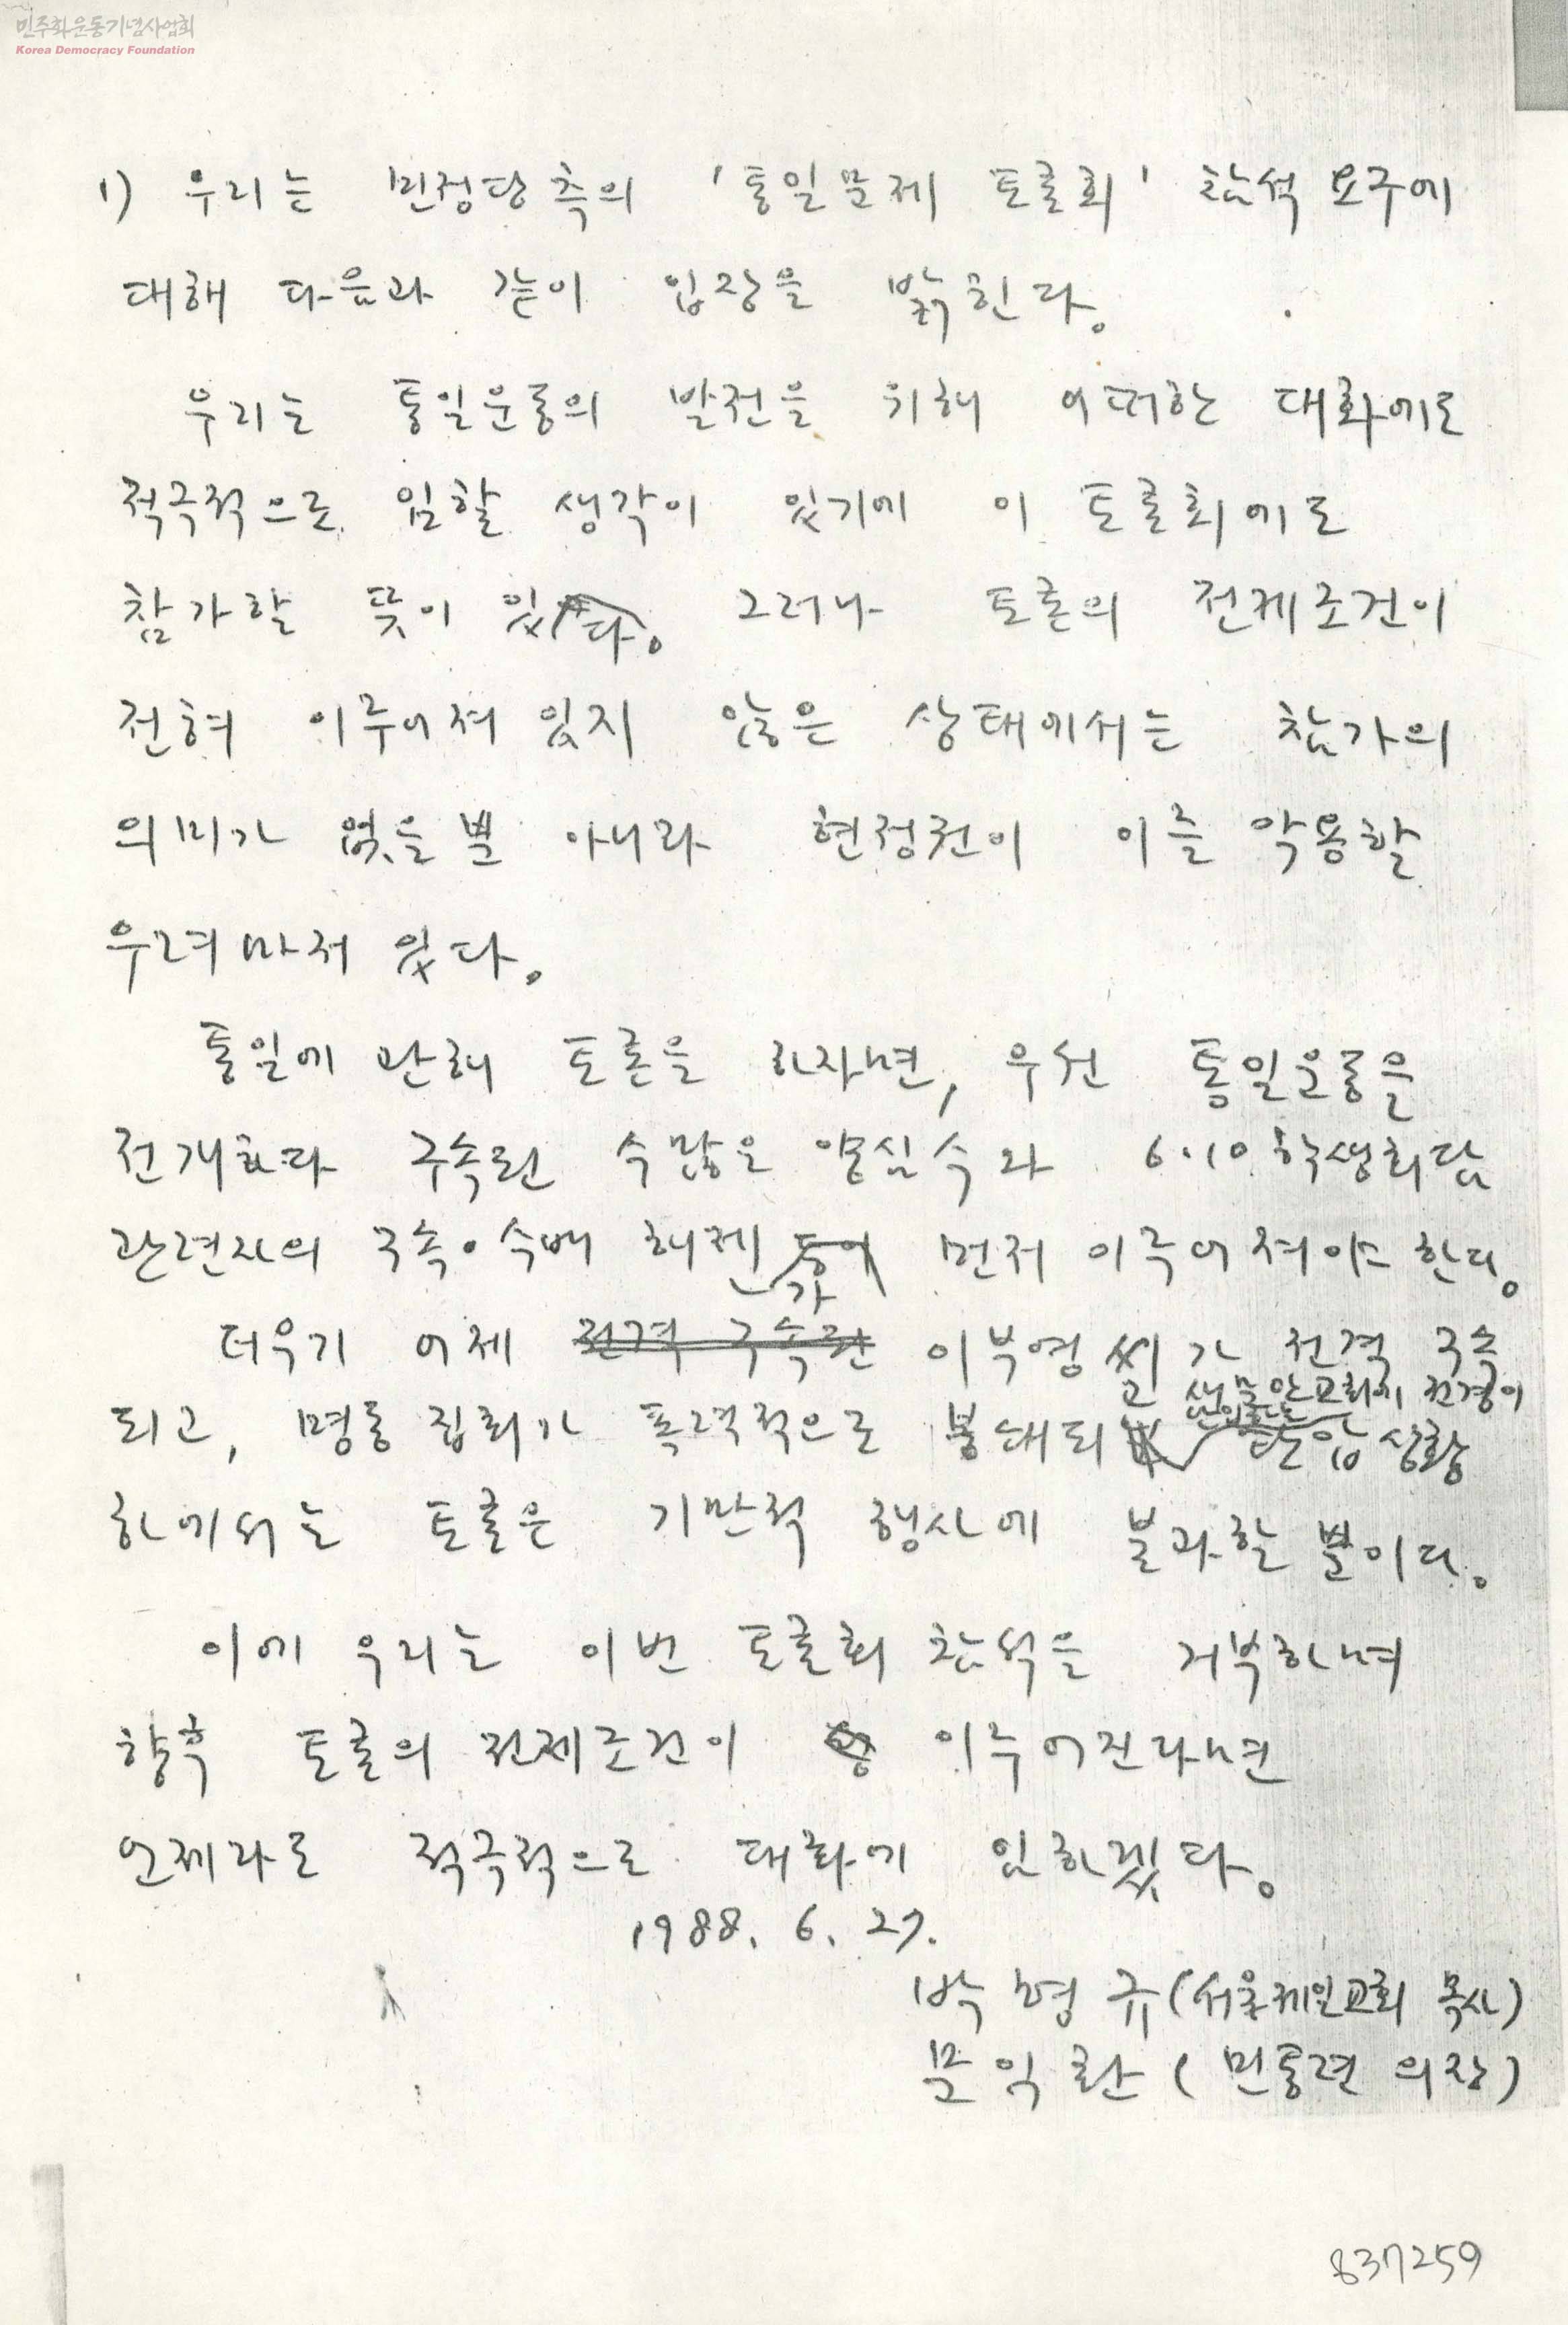 민주화운동기념사업회
Korea Democracy Foundation
1) 우리는 민정당측의 '통일문제 토론회' 참석 요구에
대해 다음과 같이 입장을 밝힌다.
우리는 통일운동의 발전을 위해 어떠한 대화에도
적극적으로 임할 생각이 있기에 이 토론회에도
참가할 뜻이 있다. 그러나 토론의 전제조건이
전혀 이루어져 있지 않은 상태에서는 참가의
의미가 없을 뿐 아니라 현정권이 이를 악용할
우려마저 있다.
통일에 관해 토론을 하자면, 우선 통일운동을
전개하다 구속된 수많은 양심수와 6·10 학생회담
관련자의 구속·수배 해제가 먼저 이루어져야 한다.
더우기 어제 전격 구속된 이부영씨가 전격 구속
고 생물안교회에 전경이
되고, 명동집회가 폭력적으로 봉쇄되 탄압상황
하에서는 토론은 기만적 행사에 불과할 뿐이다.
이에 우리는 이번 토론회 참석을 거부하며
향후 토론의 전제조건이 이루어진다면
언제라도 적극적으로 대화에 임하겠다.
1988. 6. 27.
박형규 (서울제일교회 목사)
문익환 (민통련 의장)
837259